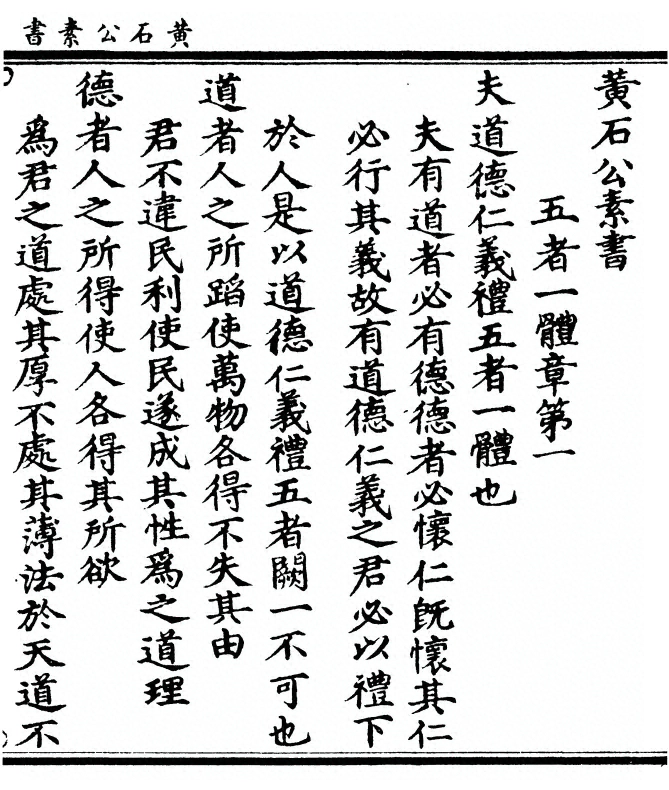 黃石公素書
黃石公素書
五者一體章第一
夫道德仁義禮五者一體也
夫有道者必有德德者必懷仁旣懷其仁
必行其義故有道德仁義之君必以禮下
於人是以道德仁義禮五者闕一不可也
道者人之所蹈使萬物各得不失其由
君不違民利使民遂成其性爲之道理
德者人之所得使人各得其所欲
爲君之道處其厚不處其薄法於天道不